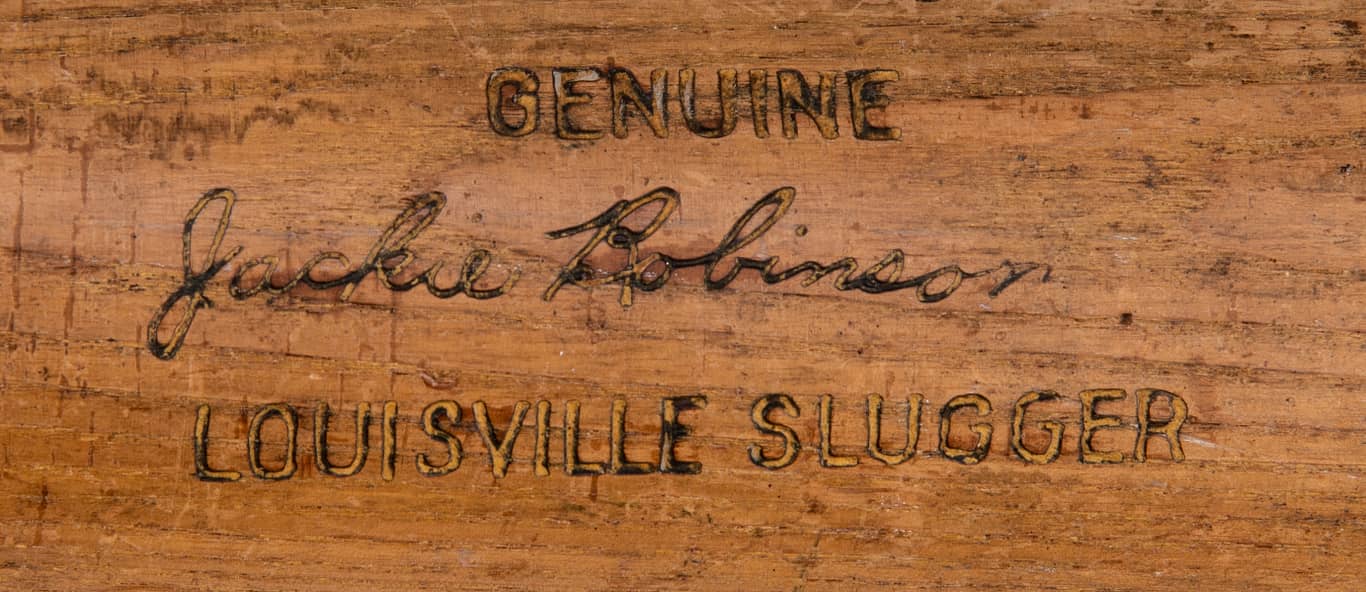 GENUINE
Jackie Robinson
LOUISVILLE SLUGGER